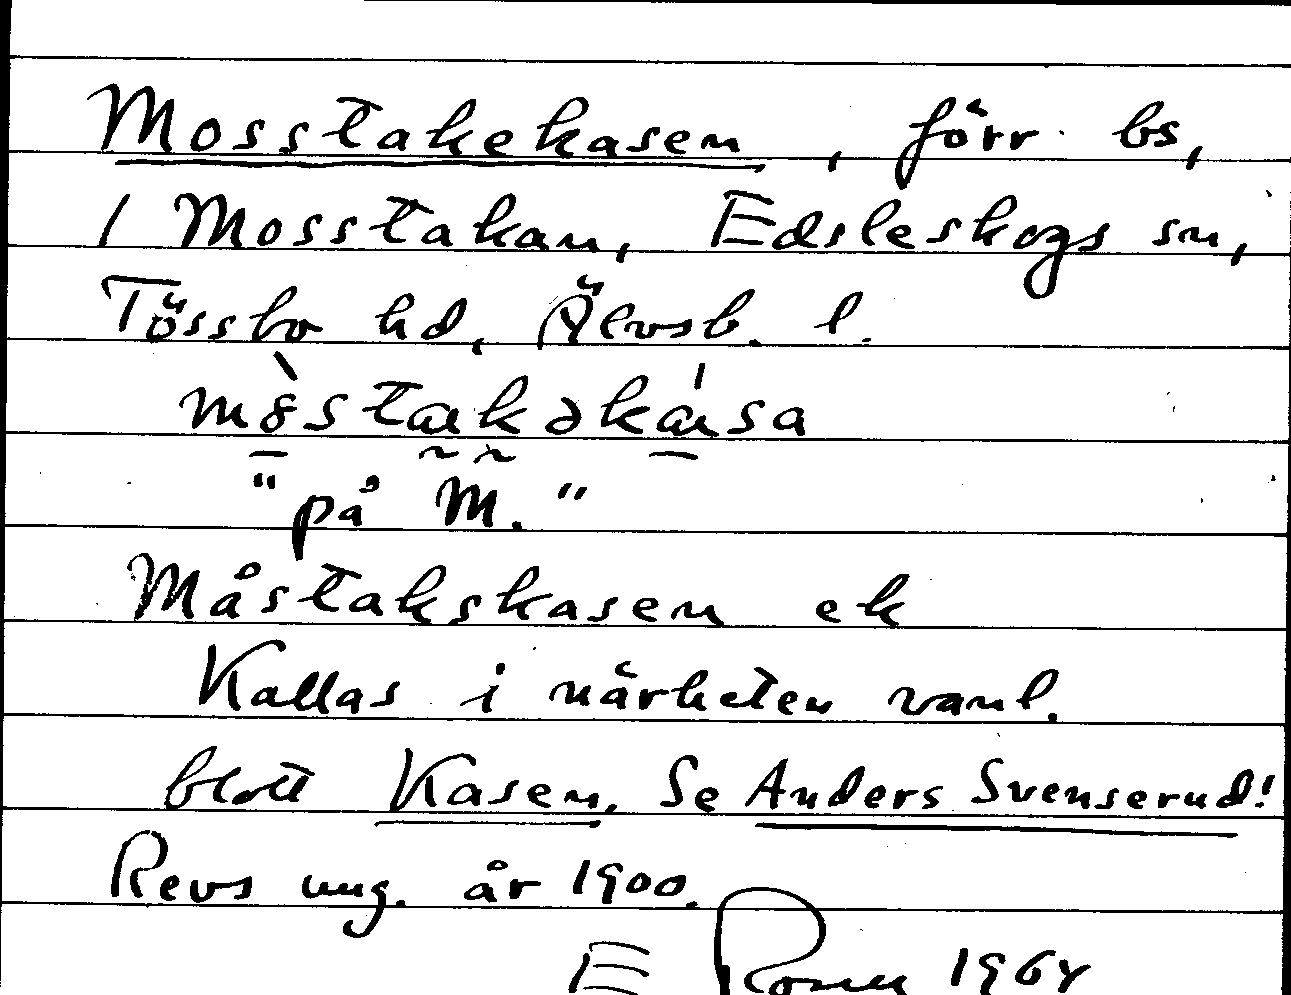 Mosstakekasen, förr bs,
/ Mosstakan, Edsleskogs sn,
Tössbo hd, Älvsb. l.
"på M."
Måstakskasen ek
Kallas i närheten vanl.
blott Kasen. Se Anders Svenserud!
Revs ung. år 1900.
E